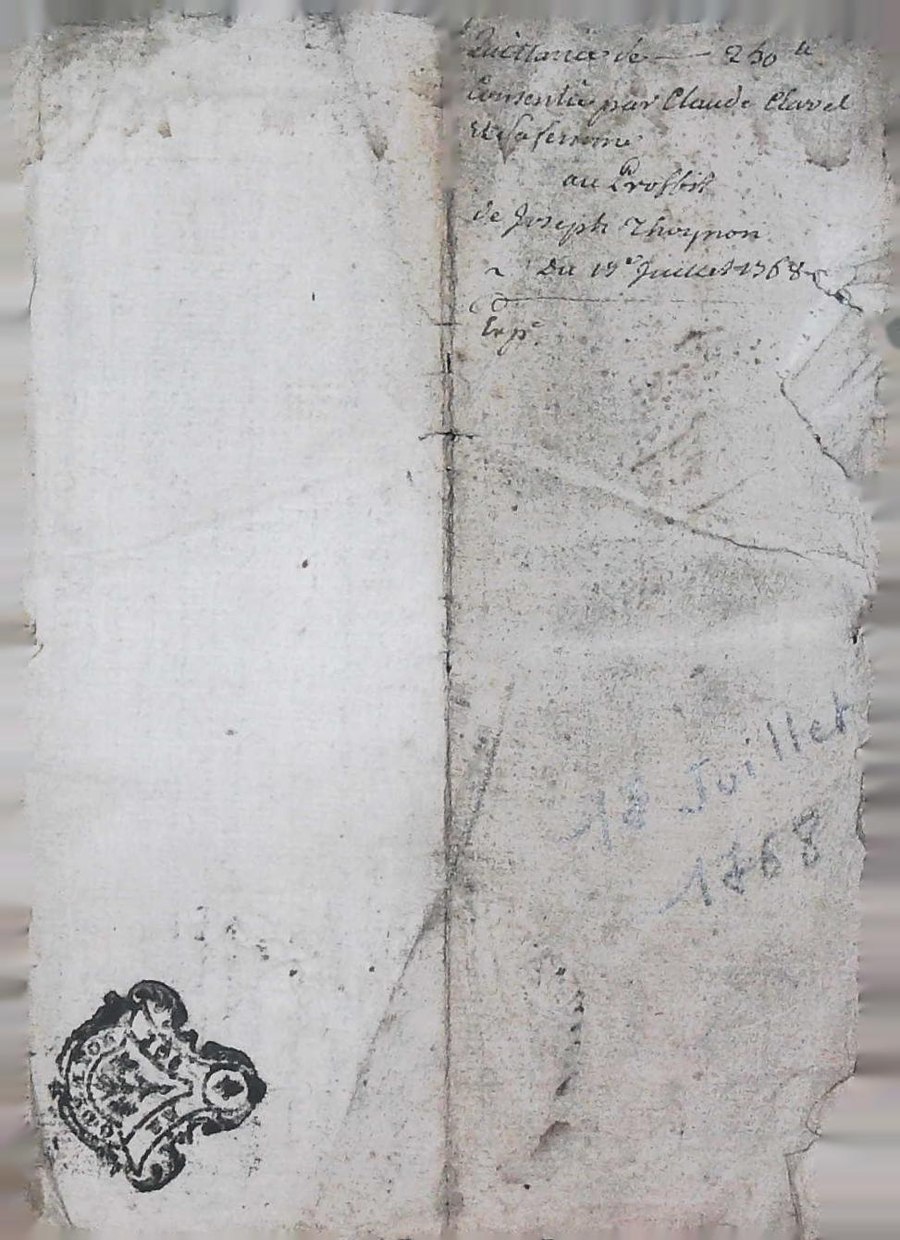 Quittance de — 250 ₶
Consentie par Claude Clavel
Et sa femme
au Proffit
de Joseph Thoynon
Du 19e Juillet 1768
Expn.
18 Juillet
1768